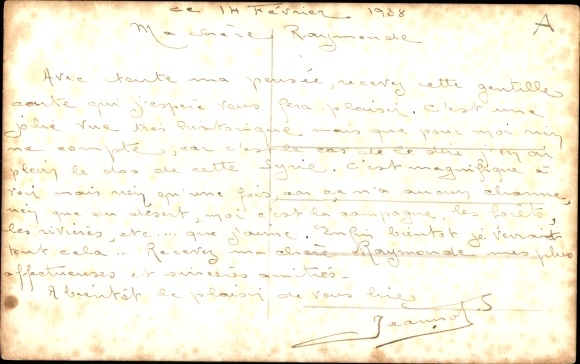 ce 14 Février 1938
A
Ma chère Raymonde
Avec toute ma pensée, recevez cette gentille
carte qui j'espère vous fera plaisir. C'est une
jolie vue très historique mais que pour moi rien
ne compte, car c'est le cas de le dire j'en ai
plein le dos de cette Syrie. C'est magnifique à
voir mais rien qu'une fois, ça n'a aucun charme,
rien que du désert, moi c'est la campagne, les forêts,
les rivières, etc.... que j'aime. Enfin bientôt je verrais
tout cela... Recevez ma chère Raymonde mes plus
affectueuses et sincères amitiés.
A bientôt le plaisir de vous lire
Jeannot